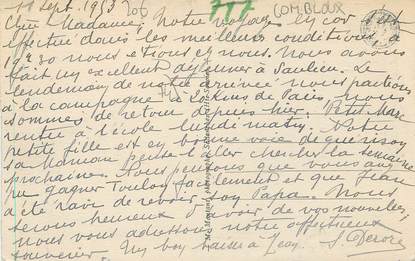 11 Sept. 1953 206 COMBLOUX
Chère Madame, Notre voyage en car s'est
effectué dans les meilleures conditions, à
19h30 nous étions chez nous. Nous avons
fait un excellent déjeuner à Saulieu. Le
lendemain de notre arrivée nous partions
à la campagne à Kms de Paris, nous
sommes de retour depuis hier. Petit Marc
rentre à l'école lundi matin. Votre
petite fille est en bonne voie de guérison
sa Maman pense l'aller chercher la semaine
prochaine. Nous pensons que vous avez
pu gagner Toulon facilement et que Jean
a été ravi de revoir son Papa. Nous
serons heureux d'avoir de vos nouvelles,
nous vous adressons notre affectueux
souvenir. Un bon baiser à Jean.